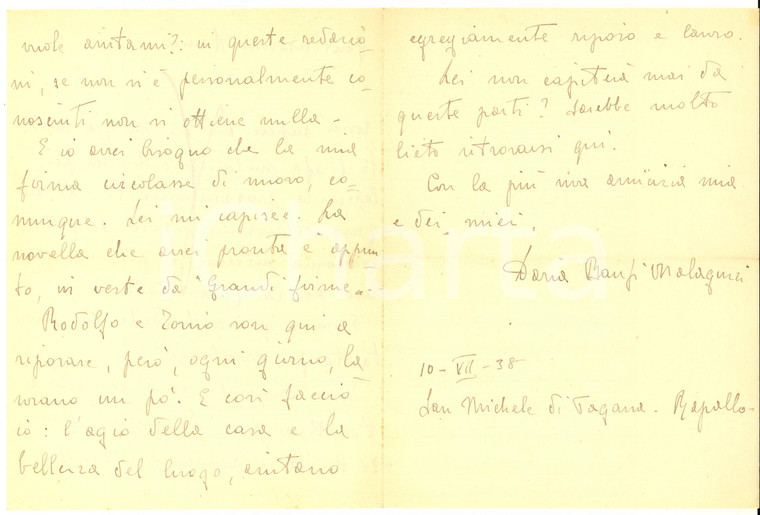 vuole aiutarmi?: in queste redazio=
ni, se non si è personalmente co=
nosciuti non si ottiene nulla -
E io avrei bisogno che la mia
firma circolasse di nuovo, co=
munque. Lei mi capisce. La
novella che avrei pronta è appun
to, in veste da "Grandi firme".
Rodolfo e Tonio son qui a
riposare, però, ogni giorno, la=
vorano un po'. E così faccio
io: l'agio della casa e la
bellezza del luogo, aiutano
egregiamente riposo e lavoro.
Lei non capiterà mai da
queste parti? Sarebbe molto
lieto ritrovarsi qui.
Con la più viva amicizia mia
e dei miei.
Daria Banfi Malaguzzi
10 - VII - 38
San Michele di Pagana. Rapallo -
iCharta